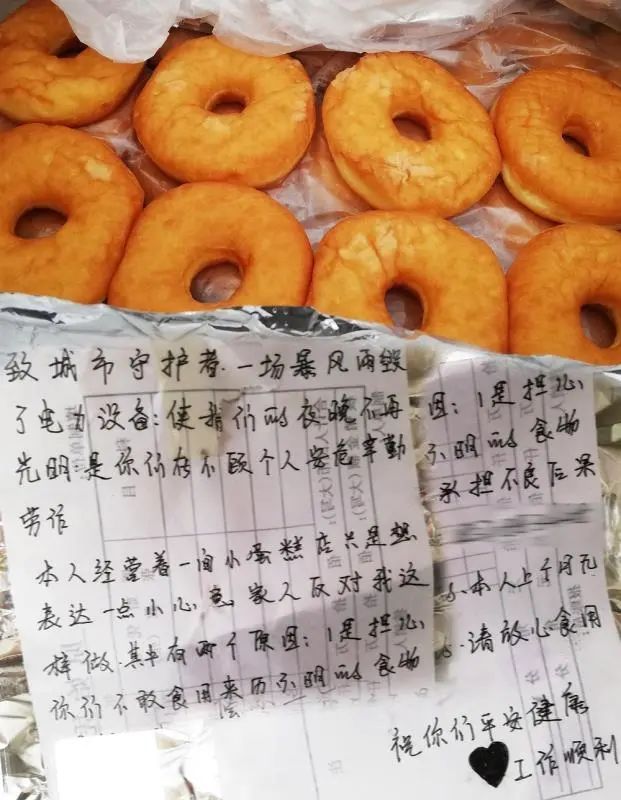 致城市守护者.一场暴风雨毁
了电力设备:使我们的夜晚不再
光明:是你们在不顾个人安危辛勤
劳作
本人经营着一间小蛋糕店只是想
表达一点小心意,家人反对我这
样做.其中有两个原因:1是担心
你们不敢食用来历不明的食物
因:1是担心
不明的食物
承担不良后果
本人上个月充
请放心食用
祝你们平安健康
工作顺利